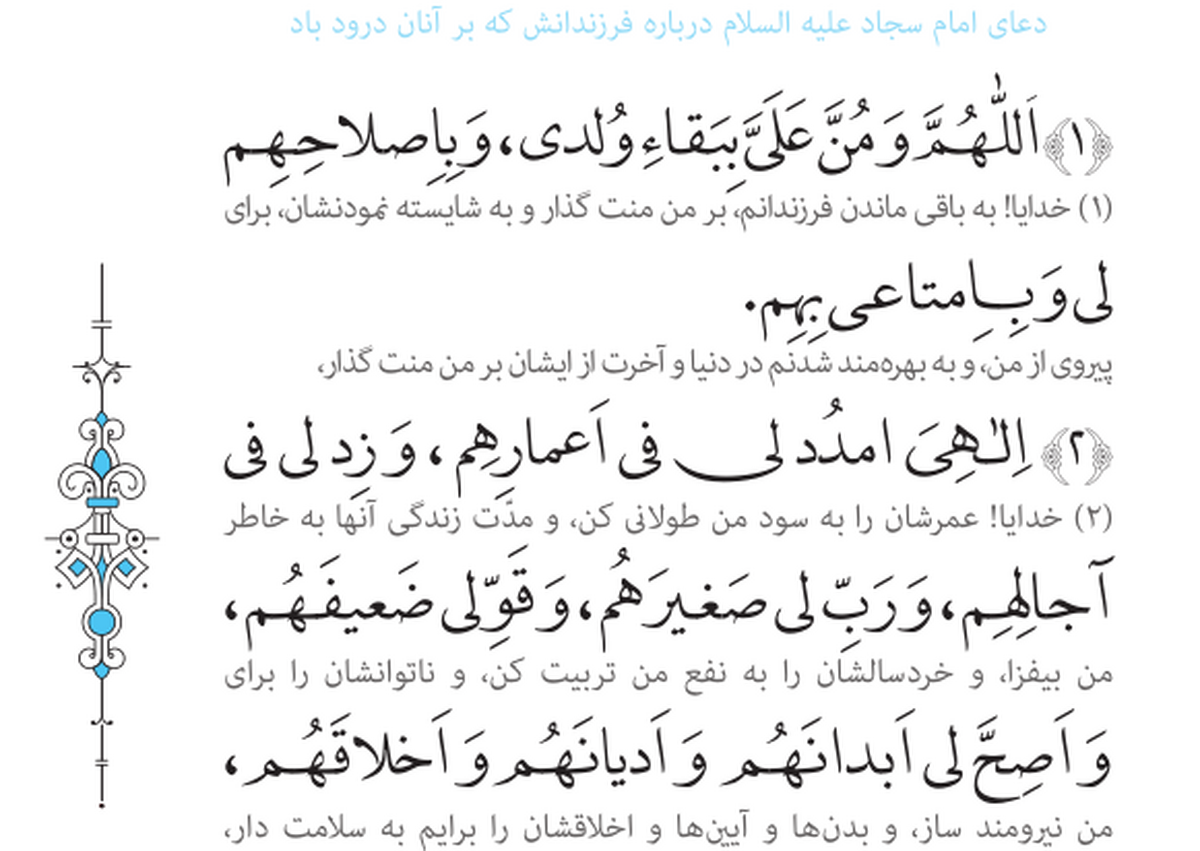 دعای امام سجاد علیه السلام درباره فرزندانش که بر آنان درود باد
﴿۱﴾ اَللّٰهُمَّ وَ مُنَّ عَلَیَّ بِبَقاءِ وُلدی، وَ بِاِصلاحِهِم
(۱) خدایا! به باقی ماندن فرزندانم، بر من منت گذار و به شایسته نمودنشان، برای
لی وَ بِـاِمتاعی بِهِم.
پیروی از من، و به بهره‌مند شدنم در دنیا و آخرت از ایشان بر من منت گذار،
﴿۲﴾ اِلـٰهِیَ امدُد لی فی اَعمارِهِم، وَ زِد لی فی
(۲) خدایا! عمرشان را به سود من طولانی کن، و مدّت زندگی آنها به خاطر
آجالِهِم، وَ رَبِّ لی صَغیرَهُم، وَ قَوِّ لی ضَعیفَهُم،
من بیفزا، و خردسالشان را به نفع من تربیت کن، و ناتوانشان را برای
وَ اَصِحَّ لی اَبدانَهُم وَ اَدیانَهُم وَ اَخلاقَهُم،
من نیرومند ساز، و بدن‌ها و آیین‌ها و اخلاقشان را برایم به سلامت دار،